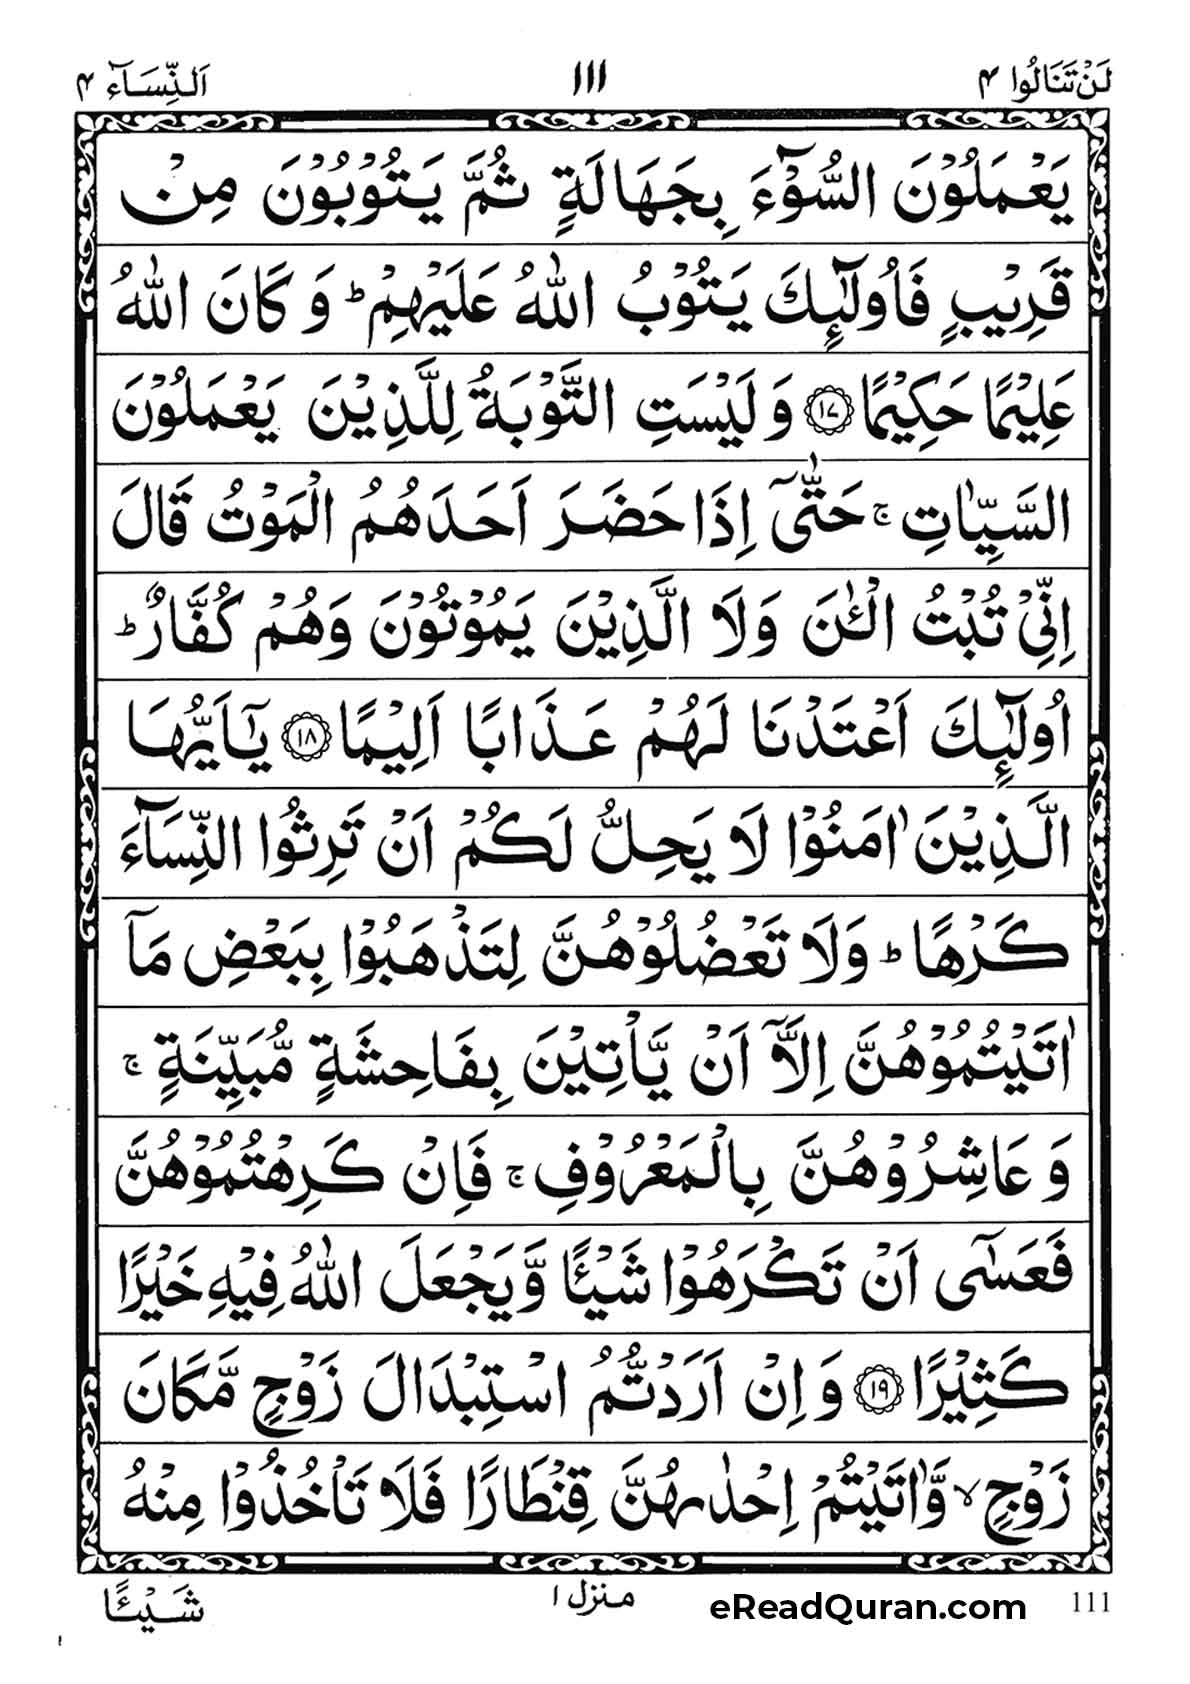 لَنْ تَنَالُوا ٤
١١١
اَلنِّسَآء ٤
يَعْمَلُوْنَ السُّوْٓءَ بِجَهَالَةٍ ثُمَّ يَتُوْبُوْنَ مِنْ
قَرِيْبٍ فَاُولٰٓئِكَ يَتُوْبُ اللّٰهُ عَلَيْهِمْ ؕ وَ كَانَ اللّٰهُ
عَلِيْمًا حَكِيْمًا ۝١٧ وَ لَيْسَتِ التَّوْبَةُ لِلَّذِيْنَ يَعْمَلُوْنَ
السَّيِّاٰتِ ۚ حَتّٰۤى اِذَا حَضَرَ اَحَدَهُمُ الْمَوْتُ قَالَ
اِنِّيْ تُبْتُ الْـٰٔنَ وَلَا الَّذِيْنَ يَمُوْتُوْنَ وَهُمْ كُفَّارٌ ؕ
اُولٰٓئِكَ اَعْتَدْنَا لَهُمْ عَذَابًا اَلِيْمًا ۝١٨ يٰۤاَيُّهَا
الَّذِيْنَ اٰمَنُوْا لَا يَحِلُّ لَكُمْ اَنْ تَرِثُوا النِّسَآءَ
كَرْهًا ؕ وَلَا تَعْضُلُوْهُنَّ لِتَذْهَبُوْا بِبَعْضِ مَاۤ
اٰتَيْتُمُوْهُنَّ اِلَّاۤ اَنْ يَّاْتِيْنَ بِفَاحِشَةٍ مُّبَيِّنَةٍ ۚ
وَ عَاشِرُوْهُنَّ بِالْمَعْرُوْفِ ۚ فَاِنْ كَرِهْتُمُوْهُنَّ
فَعَسٰۤى اَنْ تَكْرَهُوْا شَيْـًٔا وَّ يَجْعَلَ اللّٰهُ فِيْهِ خَيْرًا
كَثِيْرًا ۝١٩ وَ اِنْ اَرَدْتُّمُ اسْتِبْدَالَ زَوْجٍ مَّكَانَ
زَوْجٍ ۙ وَّاٰتَيْتُمْ اِحْدٰىهُنَّ قِنْطَارًا فَلَا تَاْخُذُوْا مِنْهُ
شَيْـًٔا
منزل ١
eReadQuran.com
111